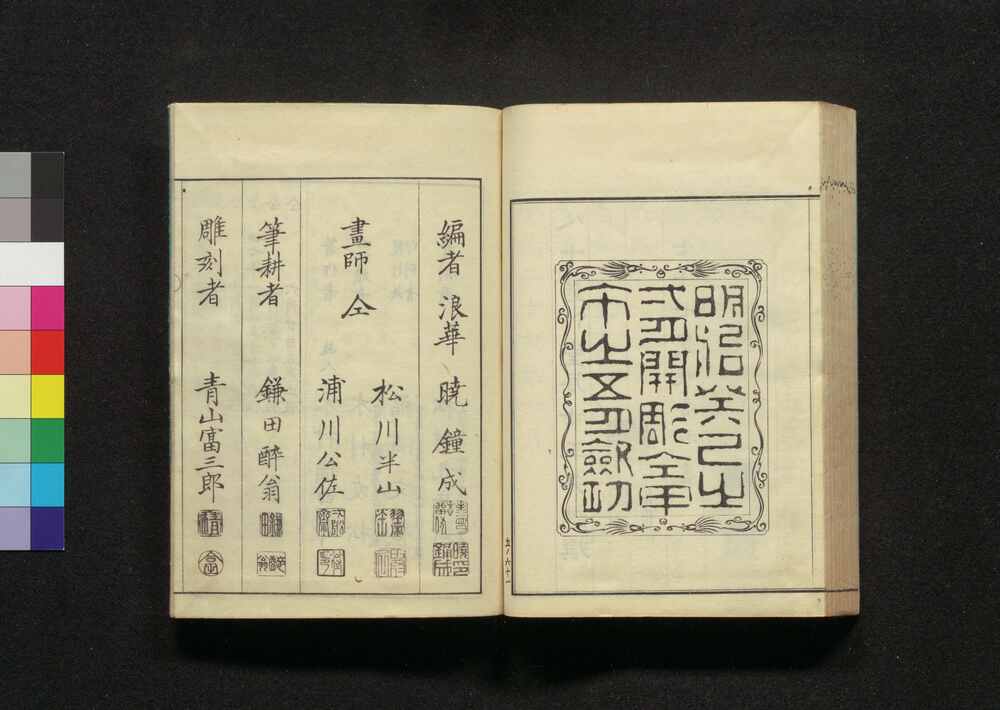 明治癸巳之
弍月開彫仝年
之五月
五ノ六十一
編者 浪華 暁鐘成
畫師 仝 松川半山
浦川公佐
筆耕者 鎌田醉翁
雕刻者 青山富三郎